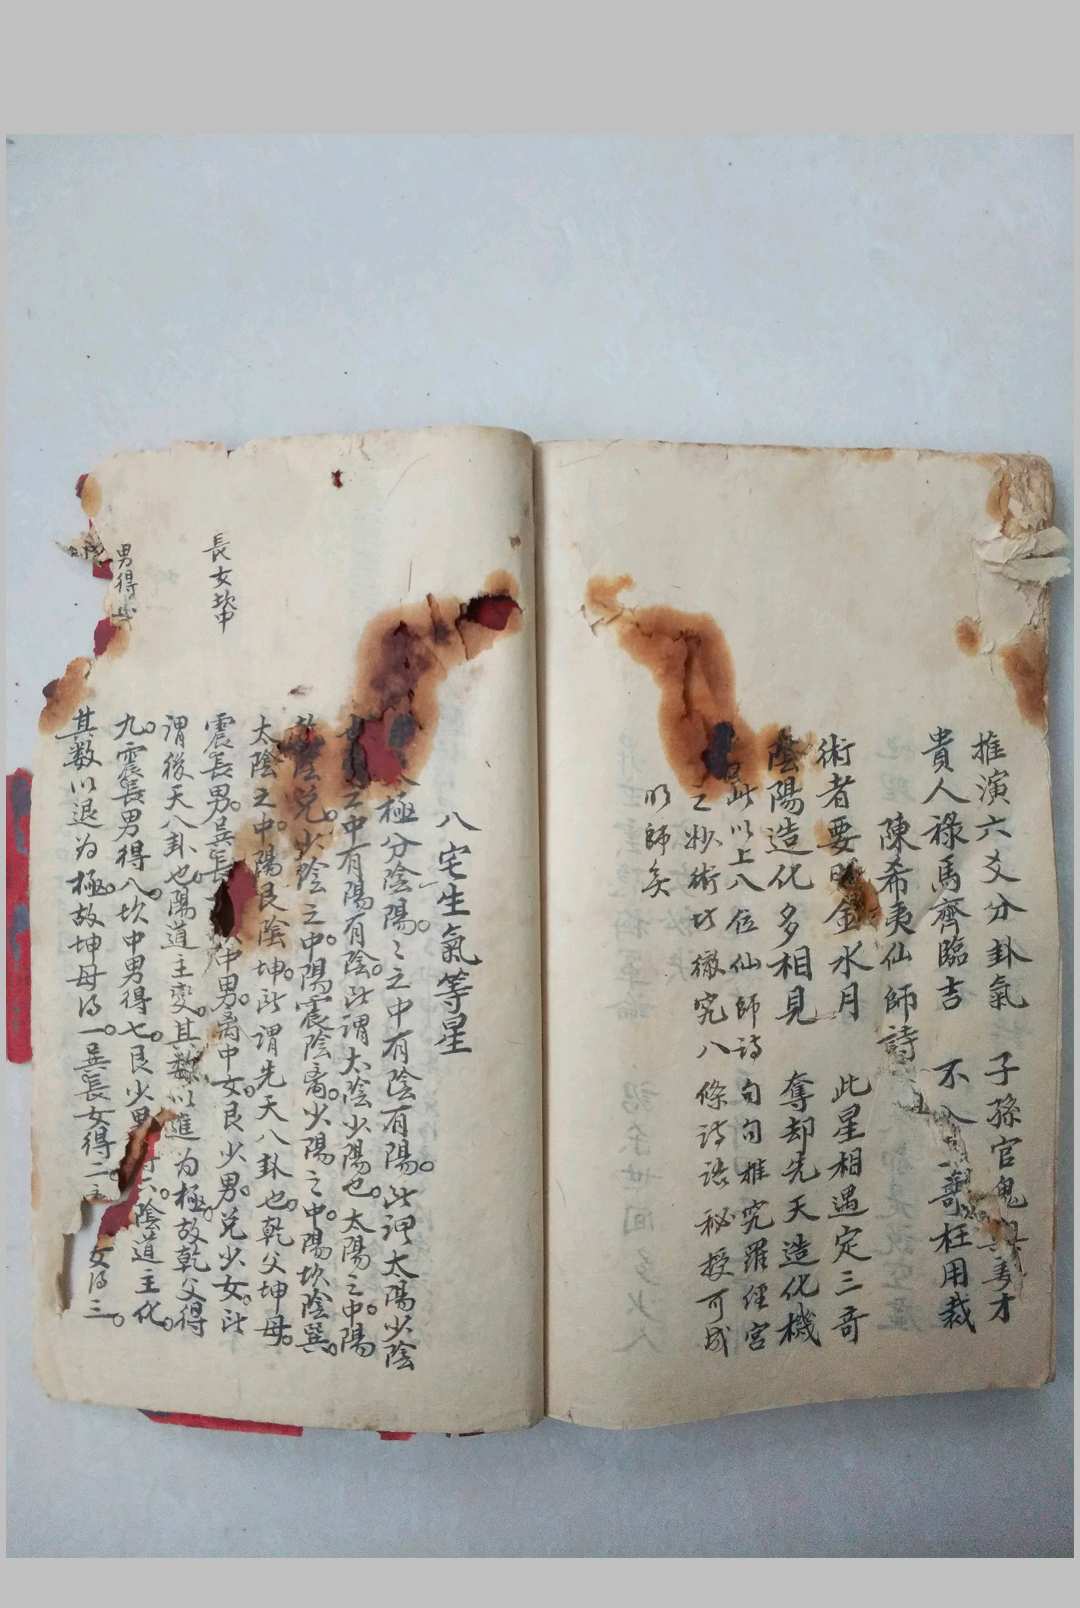 推演六爻分卦氣　子孫官鬼與才
貴人祿馬齊臨吉　不　枉用裁
陳希夷仙師詩
術者要明金水月　此星相遇定三奇
陰陽造化多相見　奪却先天造化機
此以上八位仙師詩句句推究羅經宮
之妙術以徹究八條詩訣秘授可成
明師矣
八宅生氣等星
極分陰陽。之之中有陰有陽。此謂太陽少陰
之中有陽有陰。此謂太陰少陽也。太陽之中陽
陰兌。少陰之中陽震陰离。少陽之中陽坎陰巽。
太陰之中陽艮陰坤。此謂先天八卦也。乾父坤母。
震長男。巽長中男。离中女。艮少男。兌少女。此
謂後天八卦也。陽道主變。其數以進為極。故乾父得
九。震長男得八。坎中男得七。艮少男得六。陰道主化。
其數以退為極。故坤母得一。巽長女得二。女得三。
長女
男得